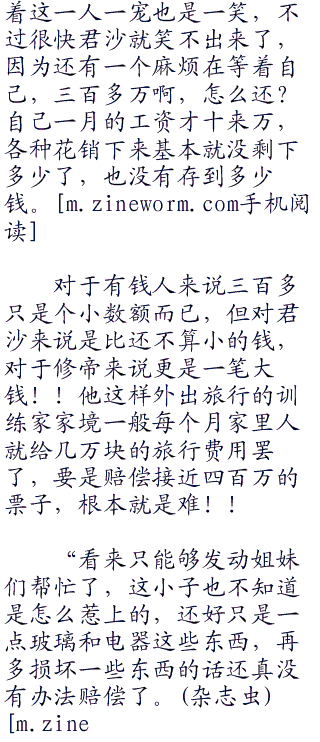 着这一人一宠也是一笑，不
过很快君沙就笑不出来了，
因为还有一个麻烦在等着自
己，三百多万啊，怎么还？
自己一月的工资才十来万，
各种花销下来基本就没剩下
多少了，也没有存到多少
钱。[m.zineworm.com手机阅
读]
对于有钱人来说三百多
只是个小数额而已，但对君
沙来说是比还不算小的钱，
对于修帝来说更是一笔大
钱！！他这样外出旅行的训
练家家境一般每个月家里人
就给几万块的旅行费用罢
了，要是赔偿接近四百万的
票子，根本就是难！！
“看来只能够发动姐妹
们帮忙了，这小子也不知道
是怎么惹上的，还好只是一
点玻璃和电器这些东西，再
多损坏一些东西的话还真没
有办法赔偿了。(杂志虫)
[m.zine